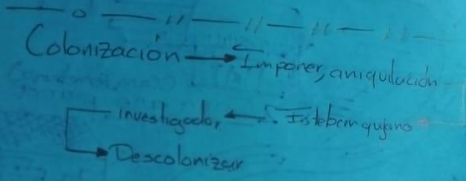 Colonización → Imponer, aniquilación
investigador, ← Esteban quijano
Descolonizar